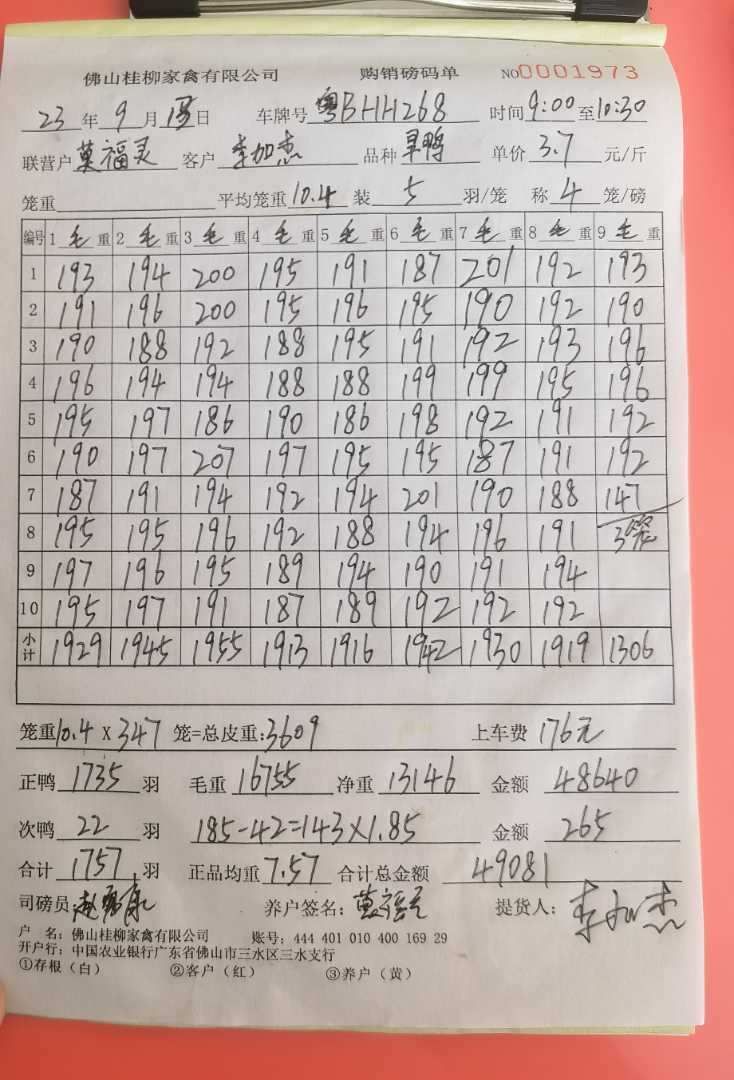 佛山桂柳家禽有限公司 购销磅码单 NO0001973
23年9月13日 车牌号 粤BHH268 时间9:00至10:30
联营户 莫福灵 客户 李加杰 品种 旱鸭 单价 3.7 元/斤
笼重 平均笼重10.4 装 5 羽/笼 称 4 笼/磅
编号 1 毛 重 2 毛 重 3 毛 重 4 毛 重 5 毛 重 6 毛 重 7 毛 重 8 毛 重 9 毛 重
1 193 194 200 195 191 187 201 192 193
2 191 196 200 195 196 195 190 192 190
3 190 188 192 188 195 191 192 193 196
4 196 194 194 188 188 199 199 195 196
5 195 197 186 190 186 198 192 191 192
6 190 197 207 197 195 195 187 191 192
7 187 191 194 192 194 201 190 188 147
8 195 195 196 192 188 194 196 191 3笼
9 197 196 195 189 194 190 191 194
10 195 197 191 187 189 192 192 192
小计 1929 1945 1955 1913 1916 1942 1930 1919 1306
笼重10.4 x 347 笼=总皮重:3609 上车费 176元
正鸭 1735 羽 毛重 16755 净重 13146 金额 48640
次鸭 22 羽 185-42=143×1.85 金额 265
合计 1757 羽 正品均重 7.57 合计总金额 49081
司磅员: 养户签名: 莫福灵 提货人: 李加杰
户 名: 佛山桂柳家禽有限公司 账号: 444 401 010 400 169 29
开户行: 中国农业银行广东省佛山市三水区三水支行
①存根（白） ②客户（红） ③养户（黄）